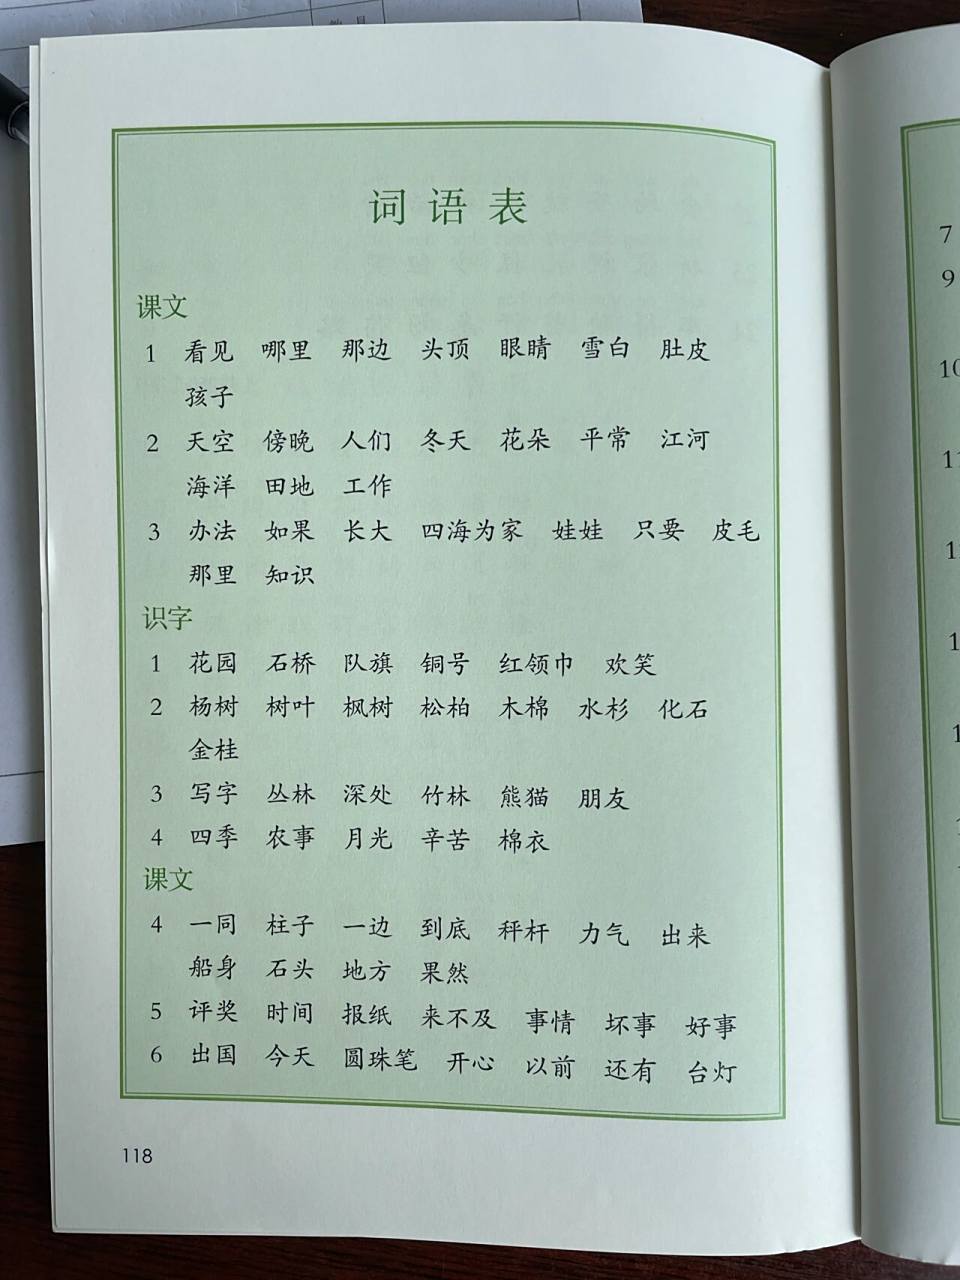 词语表
课文
1 看见 哪里 那边 头顶 眼睛 雪白 肚皮
孩子
2 天空 傍晚 人们 冬天 花朵 平常 江河
海洋 田地 工作
3 办法 如果 长大 四海为家 娃娃 只要 皮毛
那里 知识
识字
1 花园 石桥 队旗 铜号 红领巾 欢笑
2 杨树 树叶 枫树 松柏 木棉 水杉 化石
金桂
3 写字 丛林 深处 竹林 熊猫 朋友
4 四季 农事 月光 辛苦 棉衣
课文
4 一同 柱子 一边 到底 秤杆 力气 出来
船身 石头 地方 果然
5 评奖 时间 报纸 来不及 事情 坏事 好事
6 出国 今天 圆珠笔 开心 以前 还有 台灯
118
7
9
10